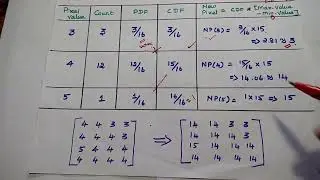 Pixel Value Count PDF CDF New Pixel = CDF * [Max.value - min.value]
3 3 3/16 3/16 NP(3) = 3/16 x 15
⇒ 2.81 ≈ 3
4 12 12/16 15/16 NP(4) = 15/16 x 15
⇒ 14.06 ≈ 14
5 1 1/16 16/16 NP(5) = 1 x 15 ⇒ 15
4 4 3 3 14 14 3 3
4 4 4 3 ⇒ 14 14 14 3
5 4 4 4 15 14 14 14
4 4 4 4 14 14 14 14